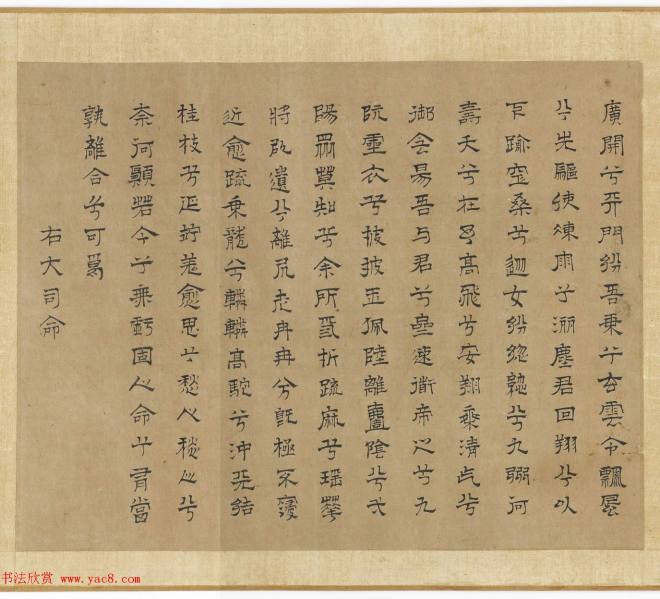 廣開兮天門紛吾乘兮玄雲令飄風
兮先驅使涷雨兮灑塵君回翔兮以
下踰空桑兮從女紛總總兮九州何
壽夭兮在予高飛兮安翔乘清氣兮
御陰陽吾与君兮齊速導帝之兮九
阬靈衣兮被披玉佩陸離壹陰兮弌
陽眾莫知兮余所爲折疏麻兮瑤華
將以遺兮離居老冉冉兮既極不寖
近愈疏乘龍兮轔轔高駝兮沖天結
桂枝兮延竚羌愈思兮愁人愁人兮
柰何願若今兮無虧固人命兮有當
孰離合兮可爲
右大司命
书法欣赏 www.yac8.com